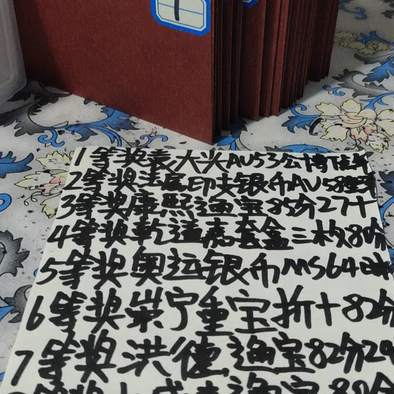 1
1等奖袁大头AU53公博
2等奖法属印支银币AU58
3等奖康熙通宝85分27十
4等奖乾隆套盒三枚80分
5等奖奥运银币MS64
6等奖崇宁重宝折十82分
7等奖洪德通宝82分24
8等奖